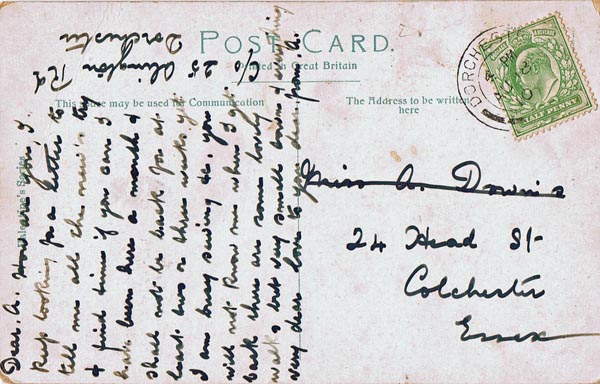 POST CARD.
Printed in Great Britain
This space may be used for Communication
The Address to be written
here
Valentine's Series
DORCHESTER
HALF PENNY
C/o 25 Alington Rd
Dorchester
Dear A. How are you, I
keep looking for a letter to
tell me all the news. try
& find time if you can I
have been here a month &
shall not be back for at
least two or three weeks yet
I am busy &c. you
will not know me when I get
back there are some lovely
walks but very small & everything
very dear love to you dear from A.
Miss A. Downis
24 Head St
Colchester
Essex